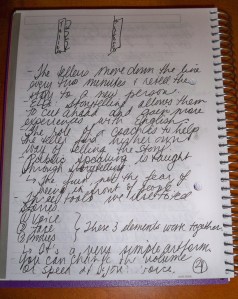 - The tellers move down the line
every two minutes & retell the
story to a new person.
- ELL storytelling allows them
to cue ahead and gain more
experiences with English
- The role of a coach is to help
the teller find his/her own
way of telling the story.
- Public speaking is taught
through storytelling
- The just not the fear of
being in front of people.
- Three tools we
stories
① Voice
② Face } These 3 elements work together
③
- It is a very simple artform.
You can change the volume
or speed of your voice.
④